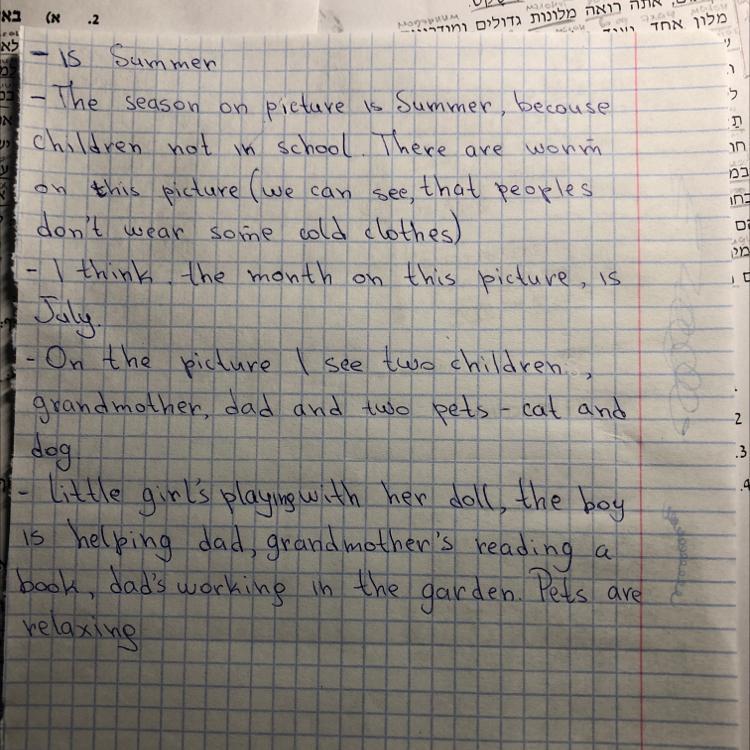 בא
א)
.2
אתה רואה מלונות גדולים
מלון אחד
- is Summer
- The season on picture is Summer, becouse
children not in school. There are worm
on this picture (we can see, that peoples
don't wear some cold clothes)
- I think, the month on this picture, is
July.
- On the picture I see two children,
grandmother, dad and two pets - cat and
dog
- Little girl's playing with her doll, the boy
is helping dad, grandmother's reading a
book, dad's working in the garden. Pets are
relaxing
2
.3
.4